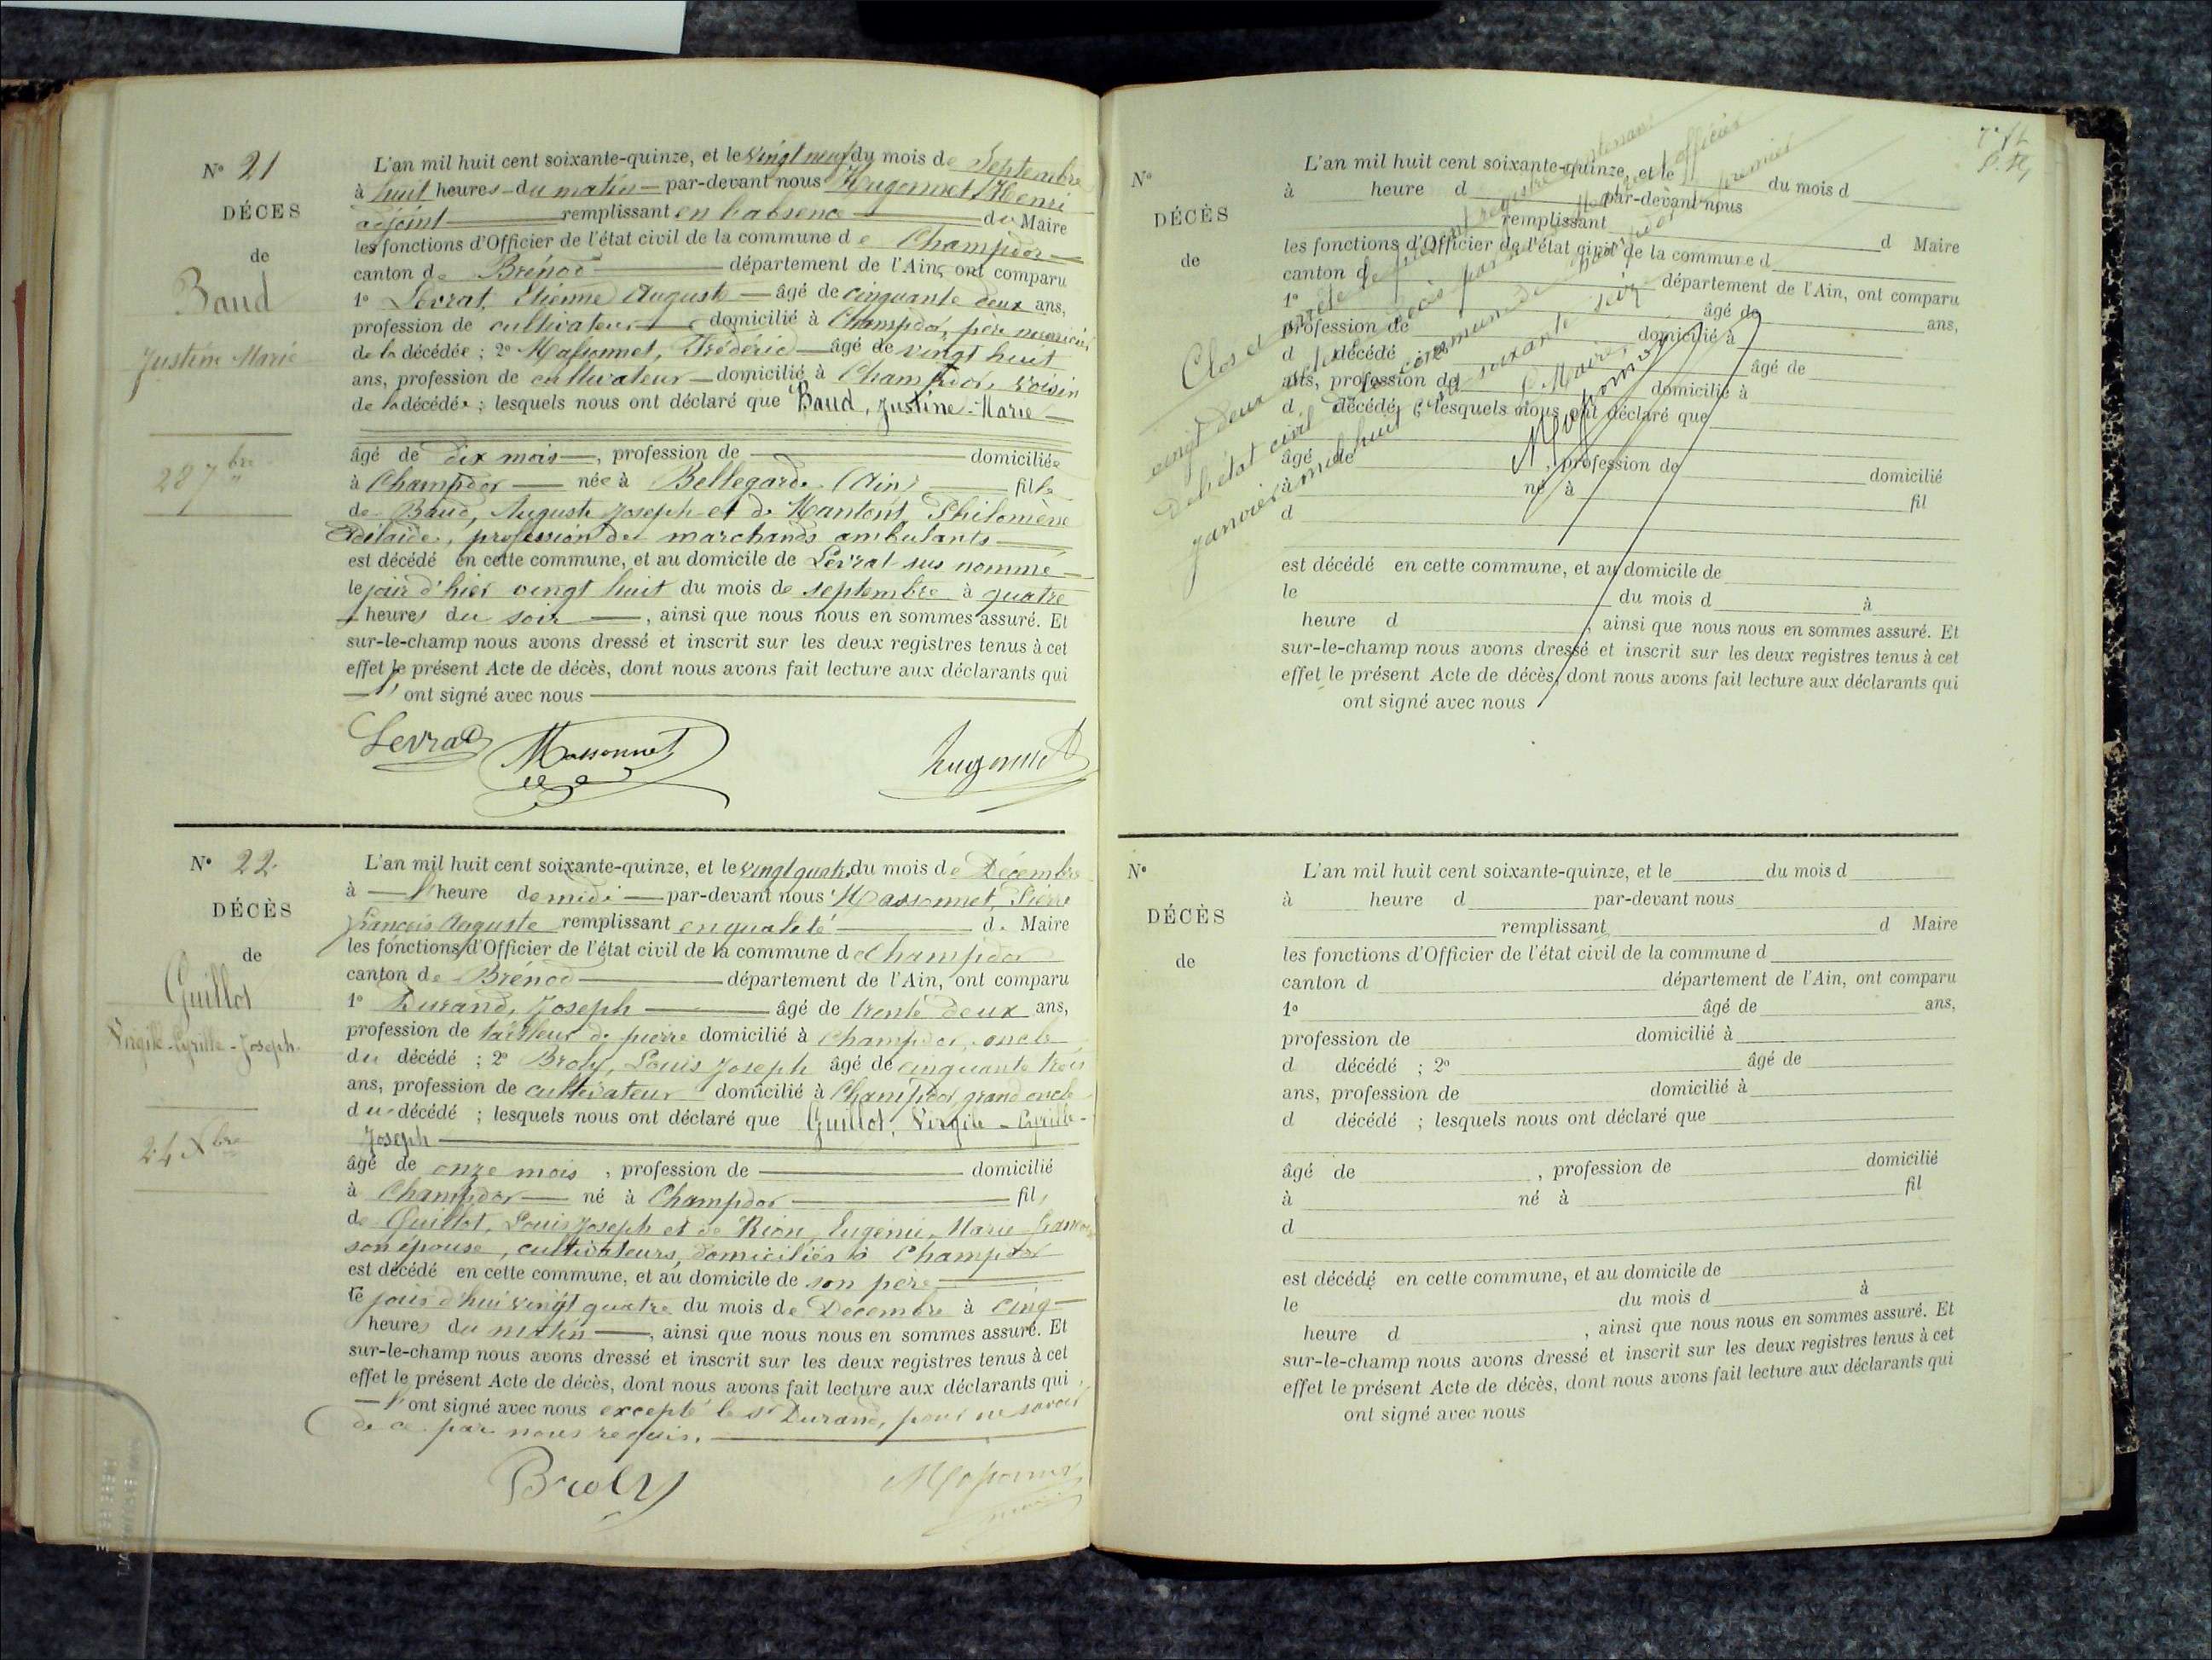 N° 21
DÉCES
de
Baud
Justine Marie
28 7bre
L'an mil huit cent soixante-quinze, et le vingt neuf du mois de Septembre
à huit heures du matin — par-devant nous Hugonnet, Henri
adjoint — remplissant en l'absence — du Maire
les fonctions d'Officier de l'état civil de la commune de Champdor —
canton de Brénod — département de l'Ain, ont comparu
1° Levrat, Etienne Auguste — âgé de cinquante deux ans,
profession de cultivateur — domicilié à Champdor, père nourricier
de la décédée ; 2° Massonnet, Frédéric — âgé de vingt huit
ans, profession de cultivateur — domicilié à Champdor, voisin
de la décédée ; lesquels nous ont déclaré que Baud, Justine-Marie —
âgé de dix mois —, profession de — domiciliée
à Champdor — née à Bellegarde (Ain) — fille
de Baud, Auguste Joseph et de Philomène
Adélaïde, profession de marchands ambulants —
est décédé en cette commune, et au domicile de Levrat sus nommé —
le jour d'hier vingt huit du mois de septembre à quatre
heures du soir —, ainsi que nous nous en sommes assuré. Et
sur-le-champ nous avons dressé et inscrit sur les deux registres tenus à cet
effet le présent Acte de décès, dont nous avons fait lecture aux déclarants qui
— ont signé avec nous —
Levrat Massonnet Hugonnet
N° 22
DÉCÈS
de
Guillot
Virgile-Cyrille-Joseph
24 Xbre
L'an mil huit cent soixante-quinze, et le vingt quatre du mois de Décembre
à — l'heure de midi — par-devant nous Massonnet, Pierre
François Auguste remplissant en qualité — de Maire
les fonctions d'Officier de l'état civil de la commune de Champdor
canton de Brénod — département de l'Ain, ont comparu
1° Durand, Joseph — âgé de trente deux ans,
profession de tailleur de pierre domicilié à Champdor, oncle
du décédé ; 2° Broly, Louis Joseph âgé de cinquante trois
ans, profession de cultivateur domicilié à Champdor, grand oncle
du décédé ; lesquels nous ont déclaré que Guillot, Virgile-Cyrille-
Joseph —
âgé de onze mois, profession de — domicilié
à Champdor — né à Champdor — fils
de Guillot, Louis Joseph et de Rion, Eugénie, Marie
son épouse, cultivateurs, domiciliés à Champdor
est décédé en cette commune, et au domicile de son père —
le jour d'hui vingt quatre du mois de Décembre à cinq —
heures du matin —, ainsi que nous nous en sommes assuré. Et
sur-le-champ nous avons dressé et inscrit sur les deux registres tenus à cet
effet le présent Acte de décès, dont nous avons fait lecture aux déclarants qui
— ont signé avec nous excepté le sr Durand, pour ne savoir
de ce par nous requis. —
Broly
N°
DÉCÈS
de
L'an mil huit cent soixante-quinze, et le du mois d
à heure d par-devant nous
remplissant d Maire
les fonctions d'Officier de l'état civil de la commune d
canton d département de l'Ain, ont comparu
1° âgé de ans,
profession de domicilié à
d décédé âgé de
ans, profession de domicilié à
d décédé ; lesquels nous ont déclaré que
âgé de , profession de domicilié
à né à fil
d
est décédé en cette commune, et au domicile de
le du mois d à
heure d , ainsi que nous nous en sommes assuré. Et
sur-le-champ nous avons dressé et inscrit sur les deux registres tenus à cet
effet le présent Acte de décès, dont nous avons fait lecture aux déclarants qui
ont signé avec nous
Clos et arrêté le présent registre contenant
vingt deux décès par nous Maire officier
de l'état civil de la commune de Champdor premier
janvier mil huit cent soixante seize
Le Maire
N°
DÉCÈS
de
L'an mil huit cent soixante-quinze, et le du mois d
à heure d par-devant nous
remplissant d Maire
les fonctions d'Officier de l'état civil de la commune d
canton d département de l'Ain, ont comparu
1° âgé de ans,
profession de domicilié à
d décédé ; 2° âgé de
ans, profession de domicilié à
d décédé ; lesquels nous ont déclaré que
âgé de , profession de domicilié
à né à fil
d
est décédé en cette commune, et au domicile de
le du mois d à
heure d , ainsi que nous nous en sommes assuré. Et
sur-le-champ nous avons dressé et inscrit sur les deux registres tenus à cet
effet le présent Acte de décès, dont nous avons fait lecture aux déclarants qui
ont signé avec nous